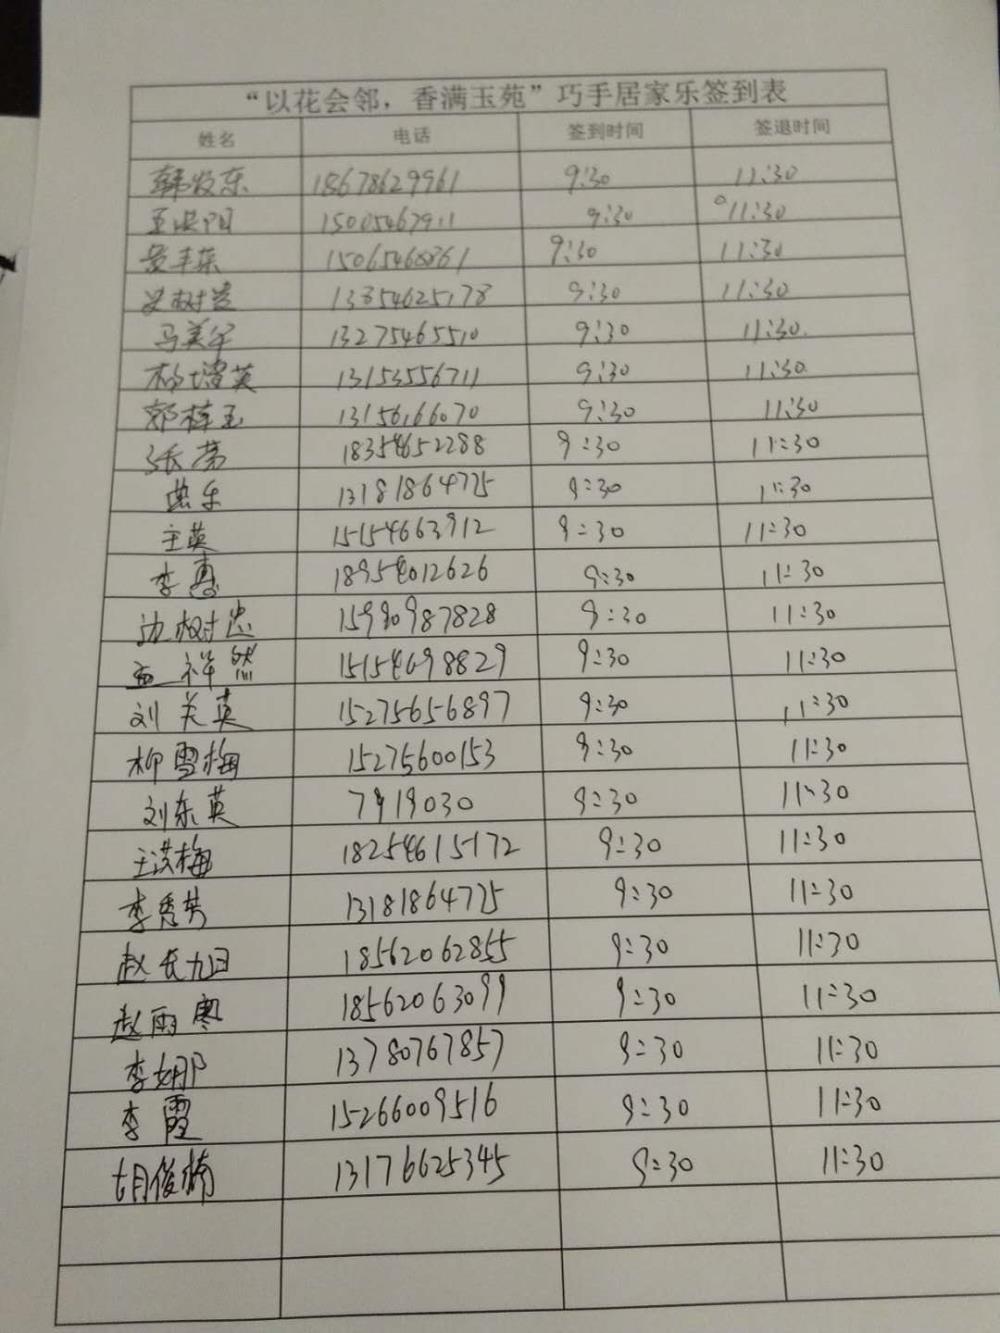 “以花会邻，香满玉苑”巧手居家乐签到表
姓名 电话 签到时间 签退时间
韩收东 18678629961 9:30 11:30
15005467911 9:30 11:30
15065468361 9:30 11:30
13854625178 9:30 11:30
马美华 13275465510 9:30 11:30
杨增英 13153556711 9:30 11:30
郑梓玉 13156166070 9:30 11:30
张芳 18354652288 9:30 11:30
13181864725 9:30 11:30
王英 15154663912 9:30 11:30
李惠 18954012626 9:30 11:30
边树忠 15990987828 9:30 11:30
孟祥然 15154698829 9:30 11:30
刘关英 15275656897 9:30 11:30
柳雪梅 15275600153 9:30 11:30
刘东英 7919030 9:30 11:30
王洪梅 18254615172 9:30 11:30
李秀芳 13181864725 9:30 11:30
赵长旭 18562062855 9:30 11:30
赵雨寒 18562063099 9:30 11:30
李娜 13780767857 9:30 11:30
李霞 15266009516 9:30 11:30
胡俊楠 13176625345 9:30 11:30